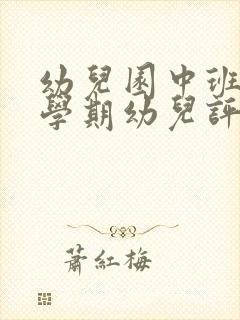 幼兒園中班
學期幼兒評
蕭紅梅